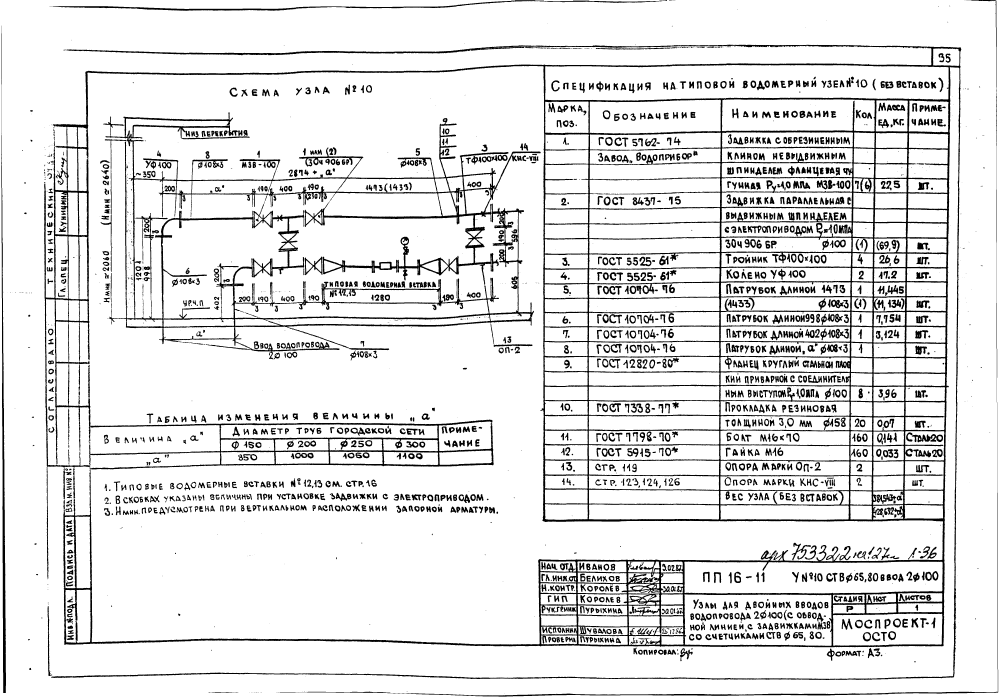 95
СХЕМА УЗЛА №10
НИЗ ПЕРЕКРЫТИЯ
4
УФ100
8
Ø108×3
1
МЗВ-100
1 ИЛИ (2)
(30ч906бр)
2874 + „а"
5
Ø108×3
9
10
11
12
3
ТФ100×100
14
КНС-VIII
~350
200 „а" 190 400 190 1473(1433) 400
(Нmin ≃ 2640)
Нmin ≃ 2060
1201
998
200
6
Ø108×3
УР.Ч.П
402
200
200 190 400 190
ТИПОВАЯ ВОДОМЕРНАЯ ВСТАВКА
№12,13
1280
190 400
200
190
596
605
„а"
ВВОД ВОДОПРОВОДА
2Ø100
7
Ø108×3
13
ОП-2
ТАБЛИЦА ИЗМЕНЕНИЯ ВЕЛИЧИНЫ „а"
ВЕЛИЧИНА „а" ДИАМЕТР ТРУБ ГОРОДСКОЙ СЕТИ ПРИМЕ-
ЧАНИЕ
Ø150 Ø200 Ø250 Ø300
„а" 850 1000 1050 1100
1. ТИПОВЫЕ ВОДОМЕРНЫЕ ВСТАВКИ №12,13 СМ. СТР. 16
2. В СКОБКАХ УКАЗАНЫ ВЕЛИЧИНЫ ПРИ УСТАНОВКЕ ЗАДВИЖКИ С ЭЛЕКТРОПРИВОДОМ.
3. Нмин. ПРЕДУСМОТРЕНА ПРИ ВЕРТИКАЛЬНОМ РАСПОЛОЖЕНИИ ЗАПОРНОЙ АРМАТУРЫ.
СПЕЦИФИКАЦИЯ НА ТИПОВОЙ ВОДОМЕРНЫЙ УЗЕЛ №10 (БЕЗ ВСТАВОК)
МАРКА, ПОЗ. ОБОЗНАЧЕНИЕ НАИМЕНОВАНИЕ КОЛ. МАССА ЕД, КГ. ПРИМЕ-ЧАНИЕ.
1. ГОСТ 5762-74 ЗАДВИЖКА С ОБРЕЗИНЕННЫМ
ЗАВОД „ВОДОПРИБОР" КЛИНОМ НЕВЫДВИЖНЫМ
ШПИНДЕЛЕМ ФЛАНЦЕВАЯ ЧУ
ГУННАЯ Ру=1,0 МПА МЗВ-100 7(6) 22,5 ШТ.
2. ГОСТ 8437-75 ЗАДВИЖКА ПАРАЛЛЕЛЬНАЯ С
ВЫДВИЖНЫМ ШПИНДЕЛЕМ
С ЭЛЕКТРОПРИВОДОМ Ру=1,0 МПА
30Ч 906 БР Ø100 (1) (69,9) ШТ.
3. ГОСТ 5525-61* ТРОЙНИК ТФ100×100 4 26,6 ШТ.
4. ГОСТ 5525-61* КОЛЕНО УФ100 2 17.2 ШТ.
5. ГОСТ 10704-76 ПАТРУБОК ДЛИНОЙ 1473 1 11,445
(1433) Ø108×3 (1) (11,134) ШТ.
6. ГОСТ 10704-76 ПАТРУБОК ДЛИНОЙ 998 Ø108×3 1 7,754 ШТ.
7. ГОСТ 10704-76 ПАТРУБОК ДЛИНОЙ 402 Ø108×3 1 3,124 ШТ.
8. ГОСТ 10704-76 ПАТРУБОК ДЛИНОЙ „а" Ø108×3 1 ШТ.
9. ГОСТ 12820-80* ФЛАНЕЦ КРУГЛЫЙ СТАЛЬНОЙ ПЛОС
КИЙ ПРИВАРНОЙ С СОЕДИНИТЕЛЬ
НЫМ ВЫСТУПОМ Ру=1,0 МПА Ø100 8 3,96 ШТ.
10. ГОСТ 7338-77* ПРОКЛАДКА РЕЗИНОВАЯ
ТОЛЩИНОЙ 3,0 ММ Ø158 20 0,07 ШТ.
11. ГОСТ 7798-70* БОЛТ М16×70 160 0,141 СТАЛЬ20
12. ГОСТ 5915-70* ГАЙКА М16 160 0,033 СТАЛЬ20
13. СТР. 119 ОПОРА МАРКИ ОП-2 2 ШТ.
14. СТР. 123,124,126 ОПОРА МАРКИ КНС-VIII 2 ШТ.
ВЕС УЗЛА (БЕЗ ВСТАВОК)
арх 753322
л-36
НАЧ. ОТД. ИВАНОВ
ГЛ.ИНЖ.ОТ БЕЛИХОВ
Н.КОНТР. КОРОЛЕВ
ГИП КОРОЛЕВ
РУК.ГРУППЫ ПУРЫХИНА
ИСПОЛНИЛ ШУВАЛОВА
ПРОВЕРИЛ ПУРЫХИНА
ПП 16-11 У№10 СТВ Ø65,80 ВВОД 2Ø100
УЗЛЫ ДЛЯ ДВОЙНЫХ ВВОДОВ
ВОДОПРОВОДА 2Ø100 (С ОБВОД-
НОЙ ЛИНИЕЙ, С ЗАДВИЖКАМИ МЗВ)
СО СЧЕТЧИКАМИ СТВ Ø 65, 80.
СТАДИЯ ЛИСТ ЛИСТОВ
Р 1
МОСПРОЕКТ-1
ОСТО
КОПИРОВАЛ:
ФОРМАТ: А3.
СОГЛАСОВАНО
ТЕХНИЧЕСКИЙ
ГЛ. СПЕЦ.
ИНВ.№ПОДЛ.
ПОДПИСЬ И ДАТА
ВЗАМ.ИНВ.№